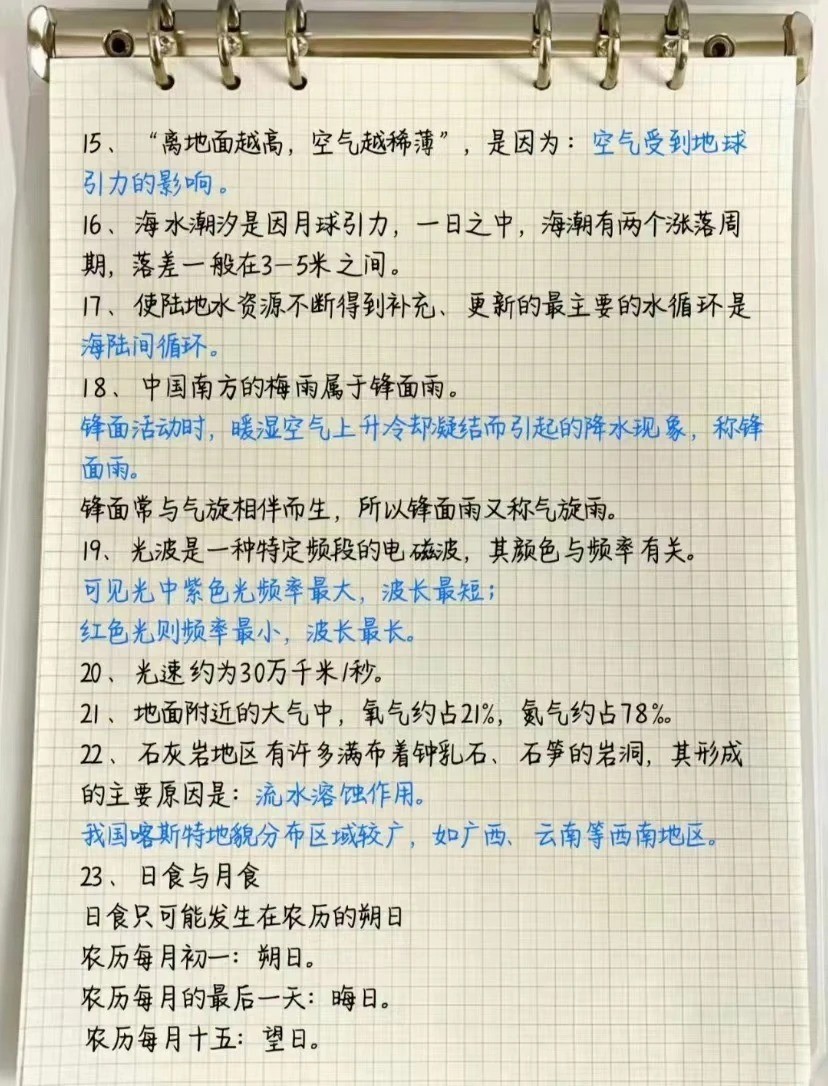 15、“离地面越高，空气越稀薄”，是因为：空气受到地球
引力的影响。
16、海水潮汐是因月球引力，一日之中，海潮有两个涨落周
期，落差一般在3—5米之间。
17、使陆地水资源不断得到补充、更新的最主要的水循环是
海陆间循环。
18、中国南方的梅雨属于锋面雨。
锋面活动时，暖湿空气上升冷却凝结而引起的降水现象，称锋
面雨。
锋面常与气旋相伴而生，所以锋面雨又称气旋雨。
19、光波是一种特定频段的电磁波，其颜色与频率有关。
可见光中紫色光频率最大，波长最短；
红色光则频率最小，波长最长。
20、光速约为30万千米/秒。
21、地面附近的大气中，氧气约占21%，氮气约占78%。
22、石灰岩地区有许多满布着钟乳石、石笋的岩洞，其形成
的主要原因是：流水溶蚀作用。
我国喀斯特地貌分布区域较广，如广西、云南等西南地区。
23、日食与月食
日食只可能发生在农历的朔日
农历每月初一：朔日。
农历每月的最后一天：晦日。
农历每月十五：望日。